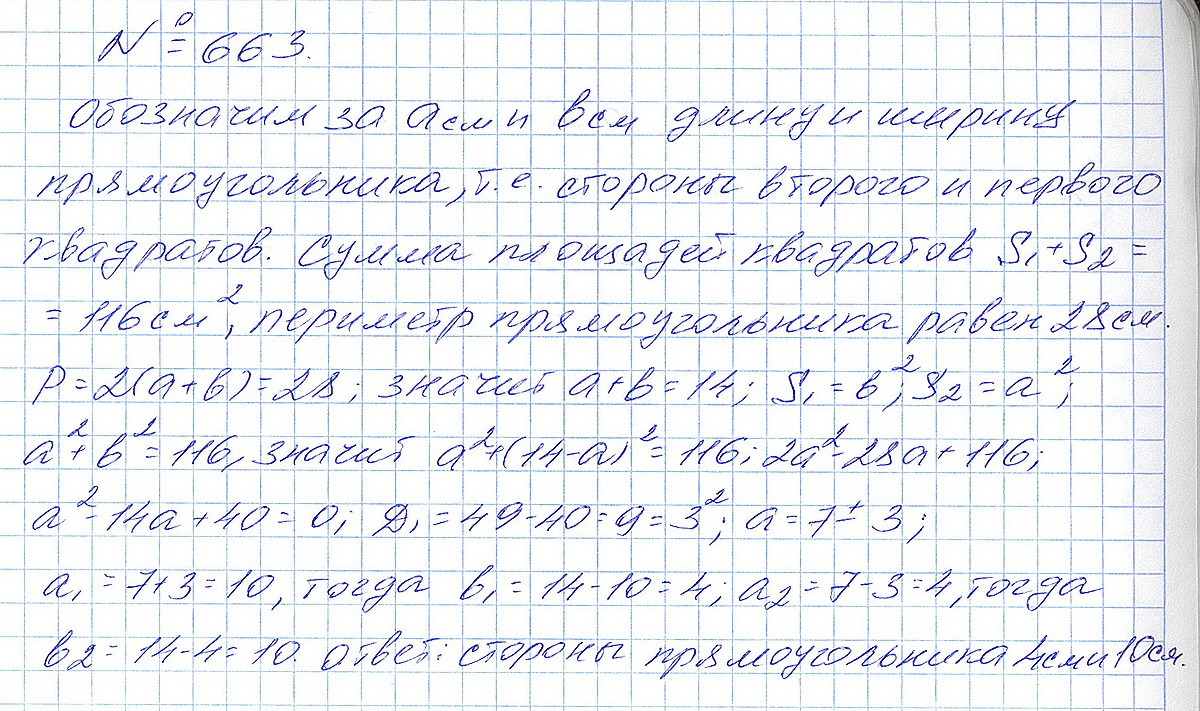 № 663.
Обозначим за a см и b см длину и ширину
прямоугольника, т.е. стороны второго и первого
квадратов. Сумма площадей квадратов S₁+S₂ =
= 116 см², периметр прямоугольника равен 28 см.
P = 2(a+b) = 28; значит a+b = 14; S₁ = b²; S₂ = a²;
a² + b² = 116, значит a²+(14-a)² = 116; 2a²-28a+116;
a²-14a+40 = 0; D₁ = 49-40 = 9 = 3²; a = 7 ± 3;
a₁ = 7+3 = 10, тогда b₁ = 14-10 = 4; a₂ = 7-3 = 4, тогда
b₂ = 14-4 = 10. Ответ: стороны прямоугольника 4 см и 10 см.